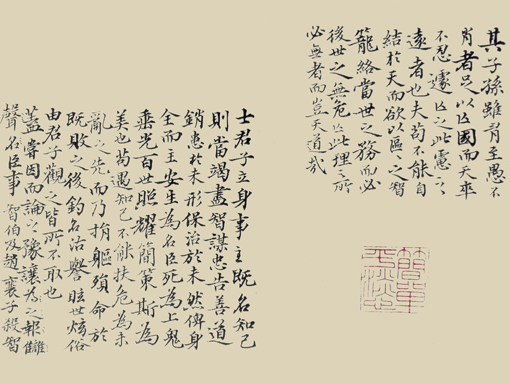 其子孫雖有至愚不
肖者足以亡國而天卒
不忍遽亡之此慮之
遠者也夫苟不能自
結於天而欲以區〻之智
籠絡當世之務而必
後世之無危亡此理之所
必無者而豈天道哉
士君子立身事主既名知己
則當竭盡智謀忠告善道
銷患於未形保治於未然俾身
全而主安生為名臣死為上鬼
垂光百世照耀簡策斯為
美也苟遇知己不能扶危為未
亂之先而乃捐軀殞命於
既敗之後釣名沽譽眩世炫俗
由君子觀之皆所不取也
蓋嘗因而論之豫讓為之報讎
聲名臣事智伯及趙襄子殺智